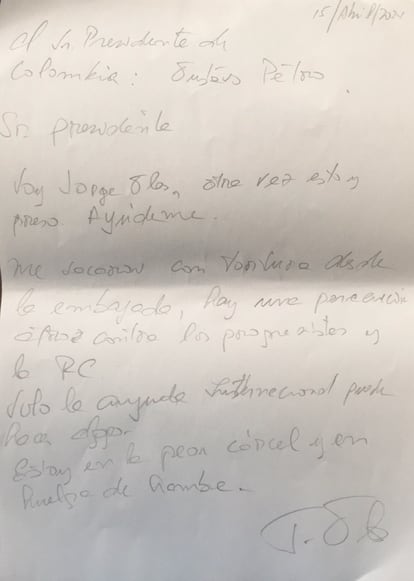 15/Abril/2024
Al Sr. Presidente de
Colombia: Gustavo Petro.
Sr presidente
Soy Jorge Glas, otra vez estoy
preso. Ayúdeme.
me sacaron con tortura desde
la embajada, hay una persecución
atroz contra los progresistas y
la RC
Solo la ayuda internacional puede
hacer algo.
Estoy en la peor cárcel y en
huelga de hambre.
J. Gl